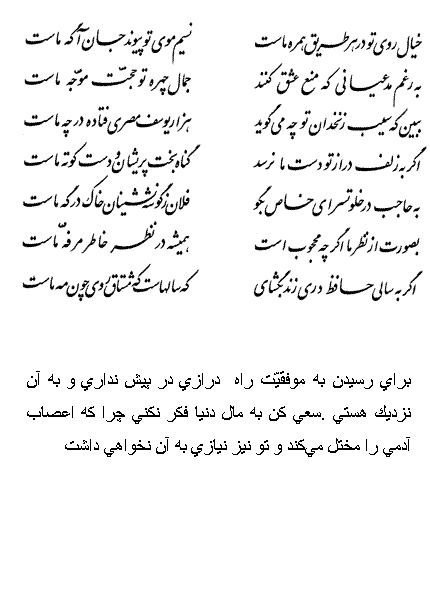 خیال روی تو در هر طریق همره ماست نسیم موی تو پیوند جان آگه ماست
به رغم مدعیانی که منع عشق کنند جمال چهره تو حجت موجه ماست
ببین که سیب زنخدان تو چه می‌گوید هزار یوسف مصری فتاده در چه ماست
اگر به زلف دراز تو دست ما نرسد گناه بخت پریشان و دست کوته ماست
به حاجب در خلوتسرای خاص بگو فلان ز گوشه نشینان خاک درگه ماست
بصورت از نظر ما اگر چه محجوب است همیشه در نظر خاطر مرفّه ماست
اگر به سالی حافظ دری زند بگشای که سالهاست که مشتاق روی چون مه ماست
براي رسيدن به موفقيّت راه درازي در پيش نداري و به آن
نزديك هستي .سعي كن به مال دنيا فكر نكني چرا كه اعصاب
آدمي را مختل مي‌كند و تو نيز نيازي به آن نخواهي داشت